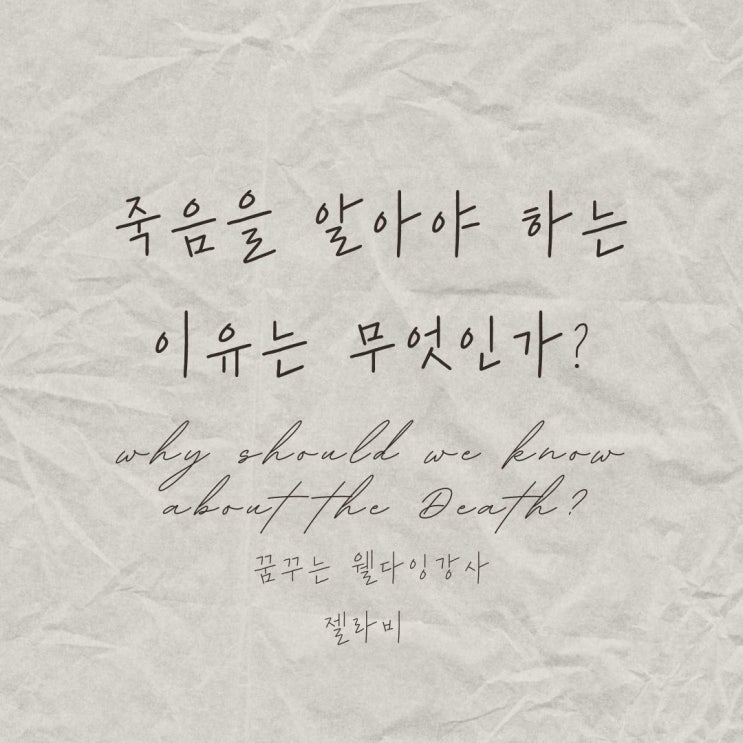 죽음을 알아야 하는
이유는 무엇인가?
why should we know
about the Death?
꿈꾸는 웰다잉강사
젤라비